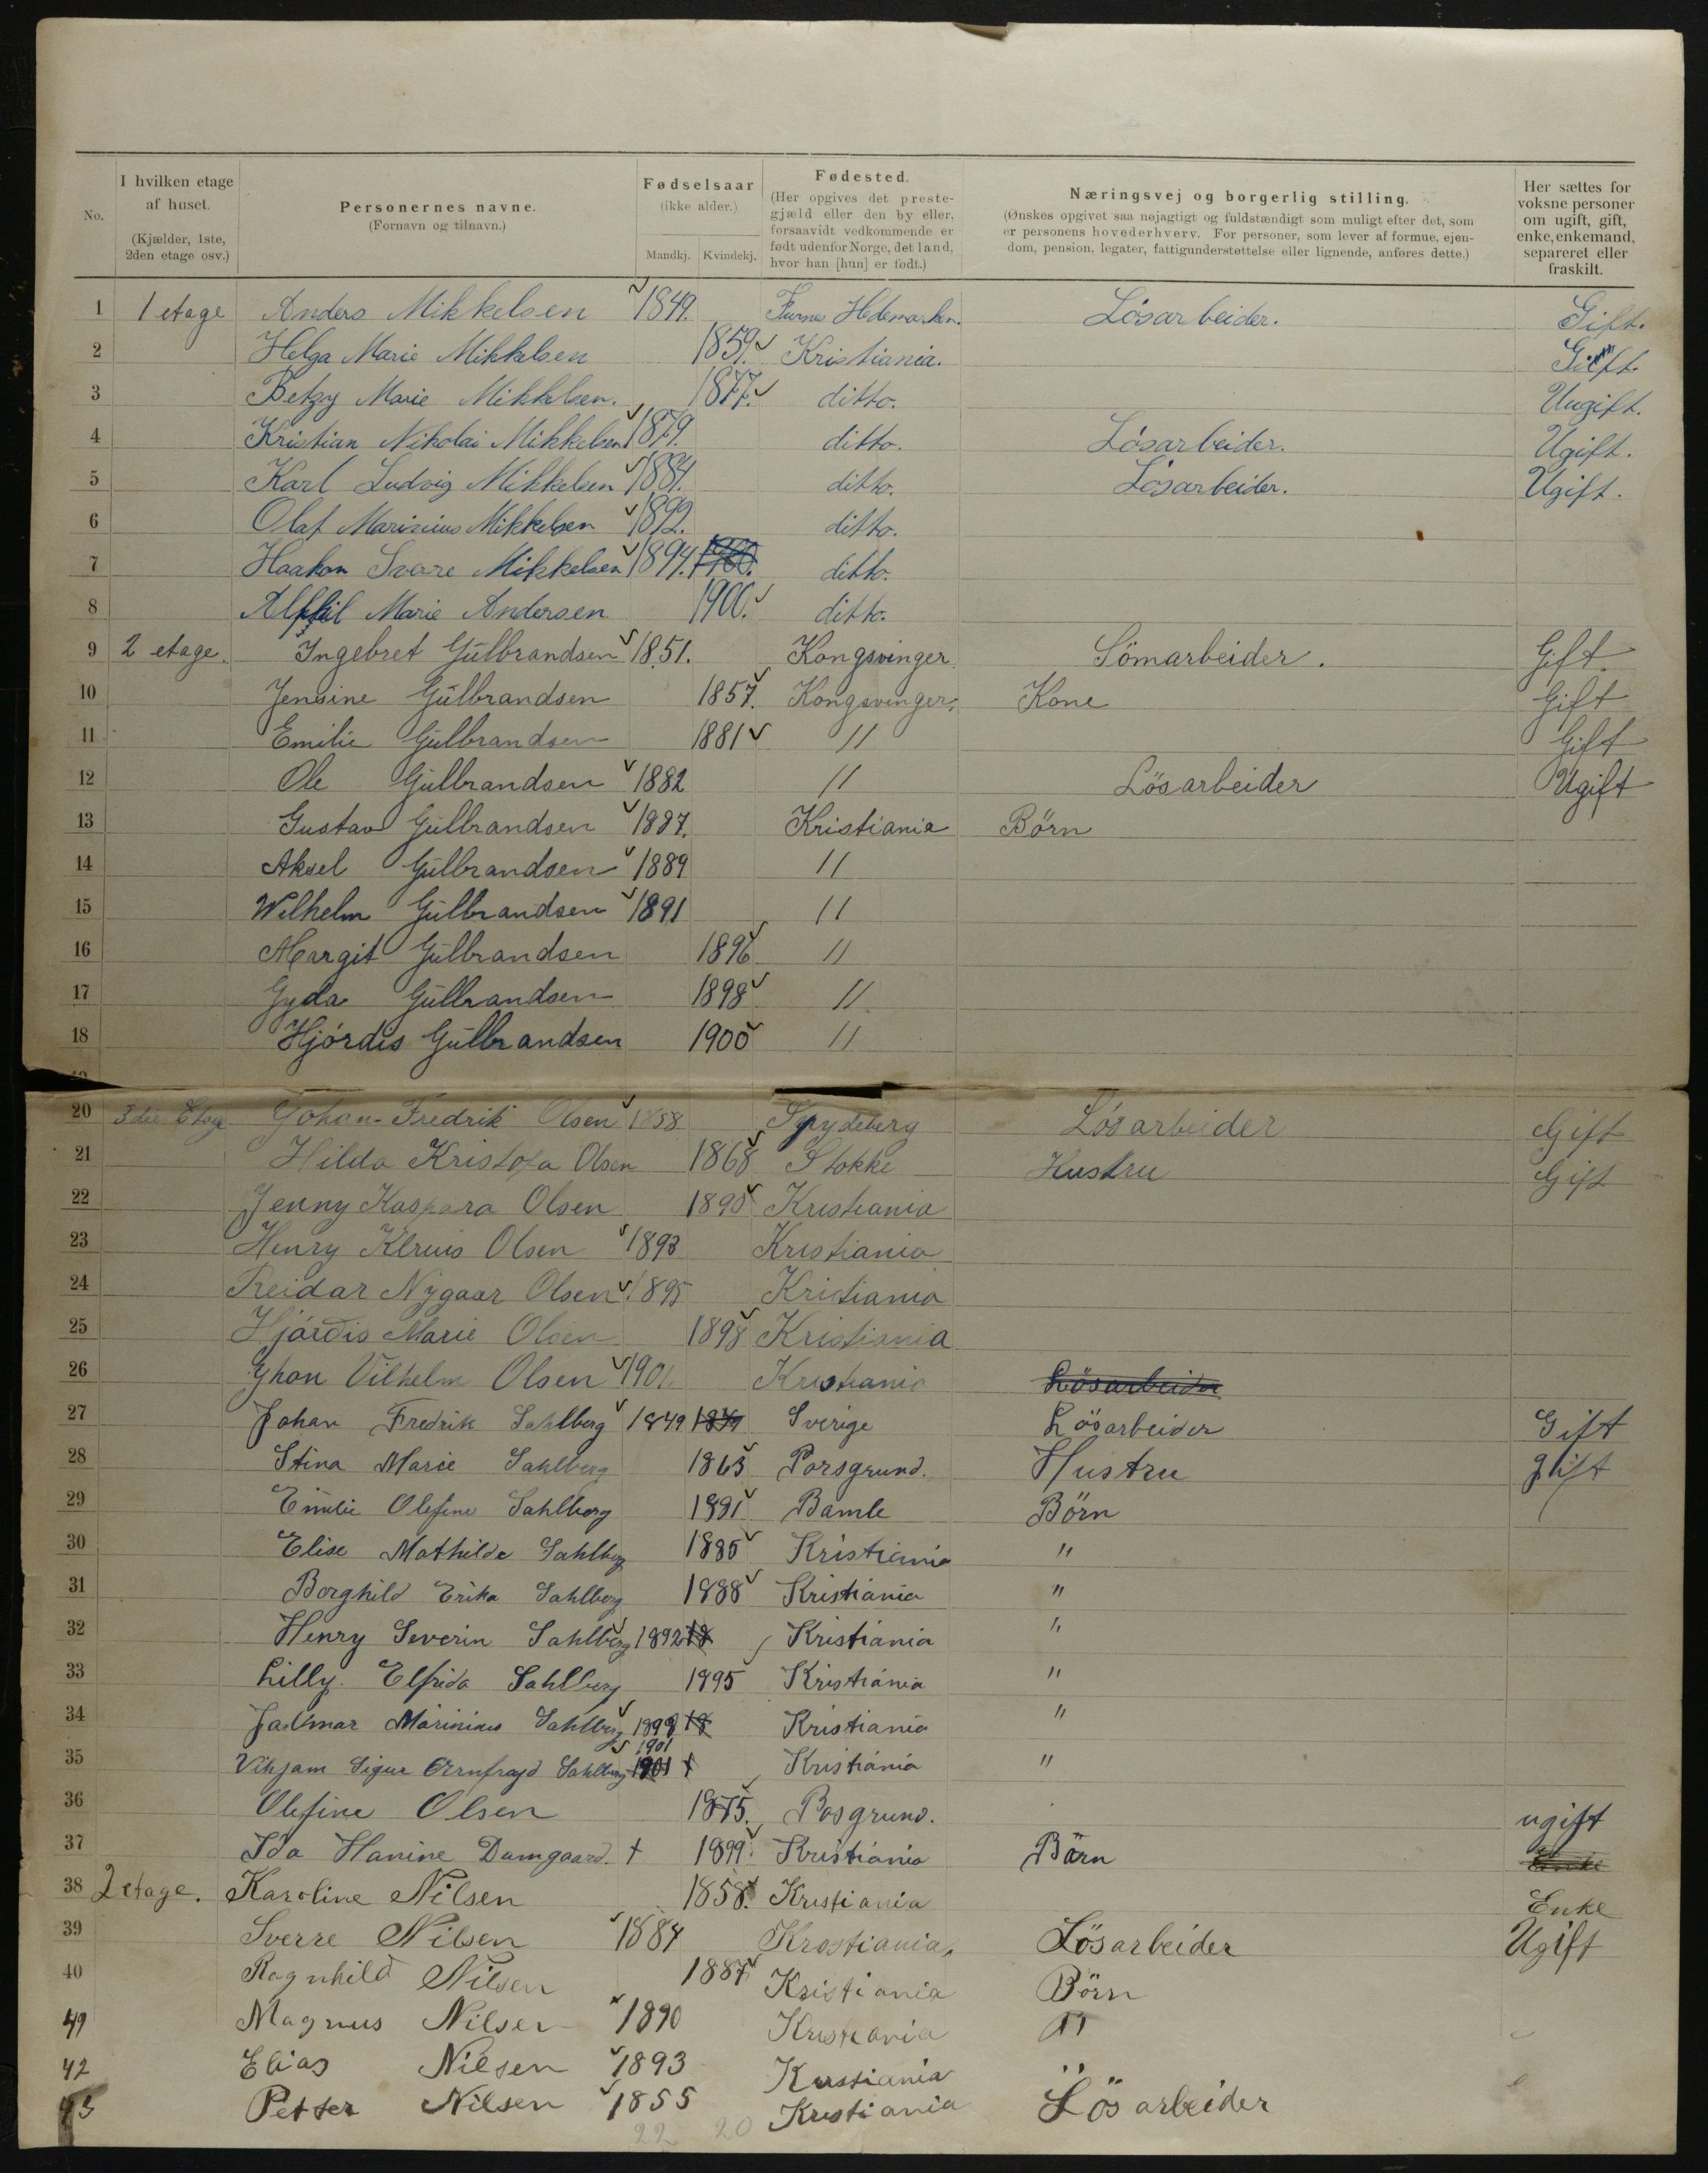 No.
I hvilken etage af huset.
(Kjælder, 1ste, 2den etage osv.)
Personernes navne.
(Fornavn og tilnavn.)
Fødselsaar
(ikke alder.)
Mandkj. Kvindekj.
Fødested.
(Her opgives det preste-
gjæld eller den by eller,
forsaavidt vedkommende er
født udenfor Norge, det land,
hvor han [hun] er født.)
Næringsvej og borgerlig stilling.
(Ønskes opgivet saa nøjagtigt og fuldstændigt som muligt efter det, som
er personens hovederhverv. For personer, som lever af formue, ejen-
dom, pension, legater, fattigunderstøttelse eller lignende, anføres dette.)
Her sættes for
voksne personer
om ugift, gift,
enke, enkemand,
separeret eller
fraskilt.
1 1 etage Anders Mikkelsen 1849. Furnes Hedemarken. Lösarbeider. Gift.
2 Helga Marie Mikkelsen 1859. Kristiania. Gift.
3 Betzy Marie Mikkelsen. 1877. ditto. Uugift.
4 Kristian Nikolai Mikkelsen 1879. ditto. Lösarbeider. Ugift.
5 Karl Ludvig Mikkelsen 1884. ditto. Lösarbeider. Ugift.
6 Olaf Marinius Mikkelsen 1892. ditto.
7 Haakon Sverre Mikkelsen 1894. 1900. ditto.
8 Marie Andersen 1900. ditto.
9 2 etage. Ingebret Gulbrandsen 1851. Kongsvinger Sömarbeider. Gift.
10 Jensine Gulbrandsen 1857. Kongsvinger. Kone Gift
11 Emilie Gulbrandsen 1881 " Gift
12 Ole Gulbrandsen 1882 " Lösarbeider Ugift
13 Gustav Gulbrandsen 1887. Kristiania Børn
14 Aksel Gulbrandsen 1889 "
15 Wilhelm Gulbrandsen 1891 "
16 Margit Gulbrandsen 1896 "
17 Gyda Gulbrandsen 1898 "
18 Hjórdis Gulbrandsen 1900 "
20 3die Etage Johan-Fredrik Olsen 1858 Spydeberg Lösarbeider Gift
21 Hilda Kristofa Olsen 1868 Stokke Hustru Gift
22 Jenny Kaspara Olsen 1890 Kristiania
23 Henry Olsen 1893 Kristiania
24 Reidar Nygaar Olsen 1895 Kristiania
25 Hjórdis Marie Olsen 1898 Kristiania
26 Yhon Vilhelm Olsen 1901. Kristiania Lösarbeider
27 Johan Fredrik Sahlberg 1849 1849 Sverige Lösarbeider Gift
28 Stina Marie Sahlberg 1863 Porsgrund. Hustru gift
29 Emilie Olefine Sahlberg 1881 Bamle Börn
30 Elise Mathilde Sahlberg 1885 Kristiania "
31 Borghild Erika Sahlberg 1888 Kristiania "
32 Henry Severin Sahlberg 1892 18 Kristiania "
33 Lilly. Elfrida Sahlberg 1895 Kristiania "
34 Jallmar Marinius Sahlberg 1898 18 Kristiania "
35 Sigur Sahlberg 1901 1901 Kristiania "
36 Olefine Olsen 1875. Posgrund. ugift
37 Ida Hanine Damgaard. † 1899. Kristiania Börn Enke
38 2 etage. Karoline Nilsen 1858. Kristiania Enke
39 Sverre Nilsen 1884 Krostiania. Lösarbeider Ugift
40 Ragnhild Nilsen 1887 Kristiania Börn
41 Magnus Nilsen 1890 Kristiania "
42 Elias Nilsen 1893 Kristiania "
43 Petter Nilsen 1855 Kristiania Lösarbeider
22 20